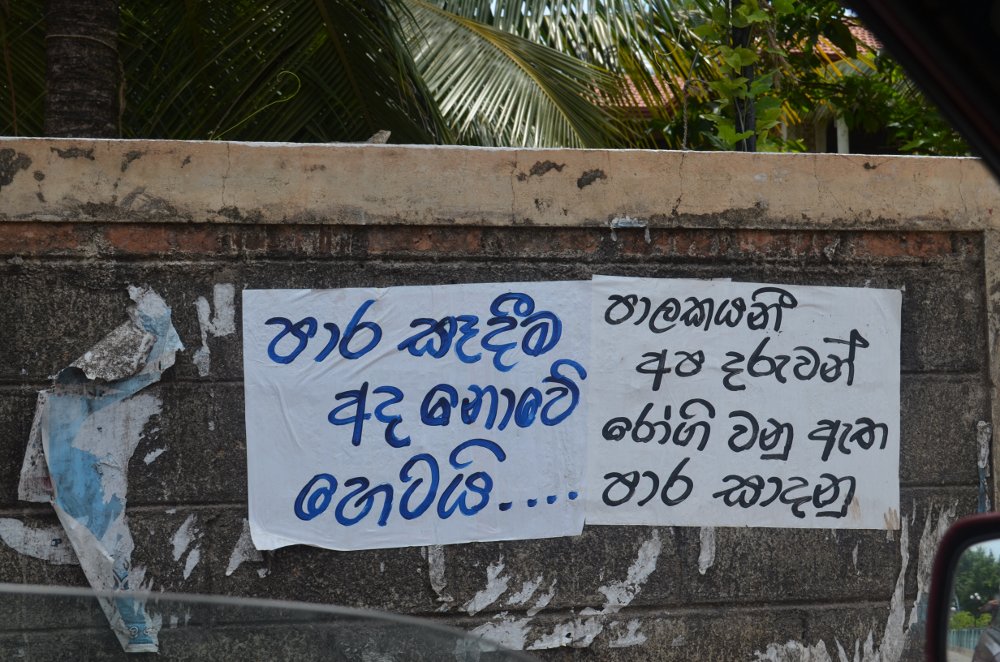 පාර සෑදීම
අද නොවේ
හෙටයි....
පාලකයනි
අප දරුවන්
රෝගි වනු ඇත
පාර සාදනු